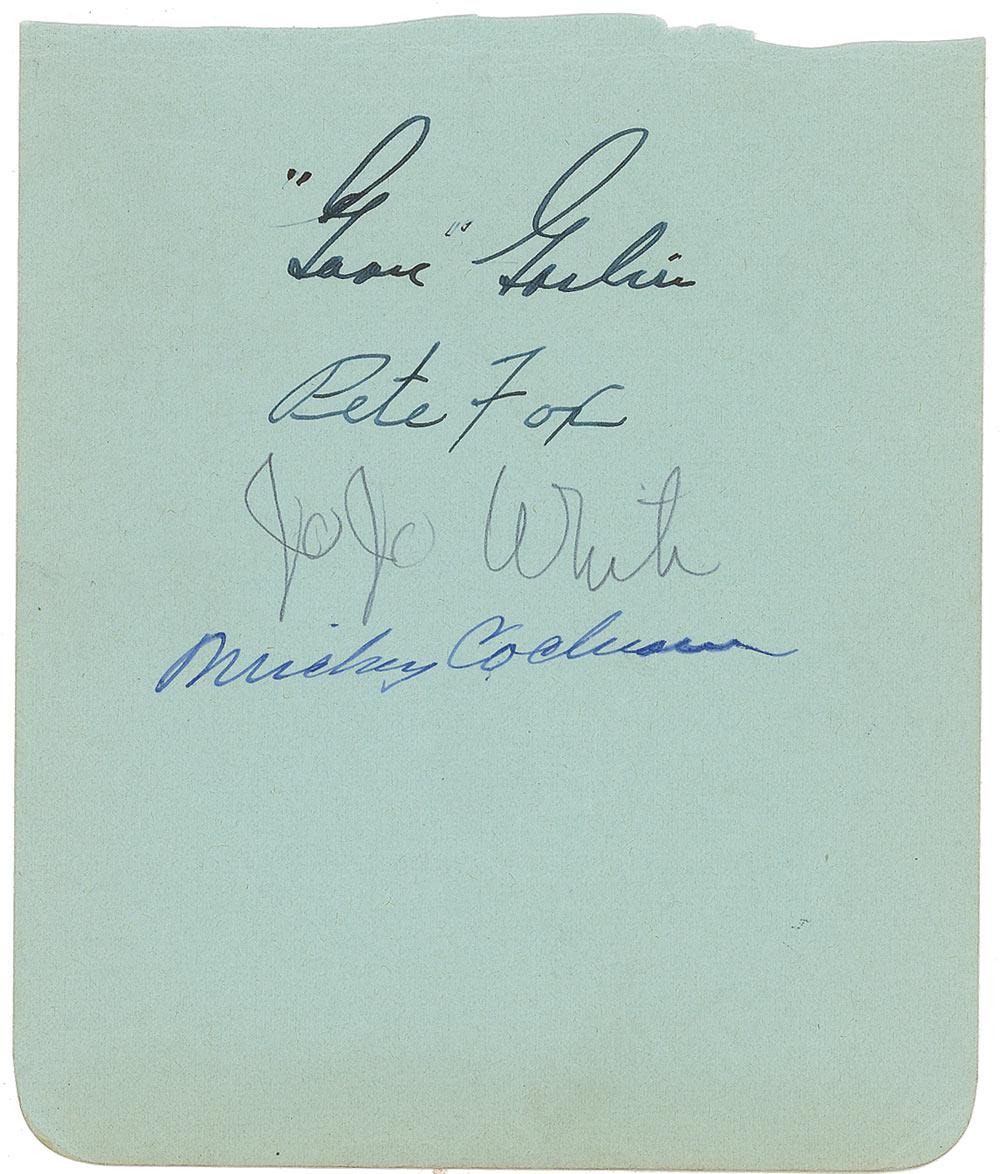 "Goose" Goslin
Pete Fox
JoJo White
Mickey Cochrane